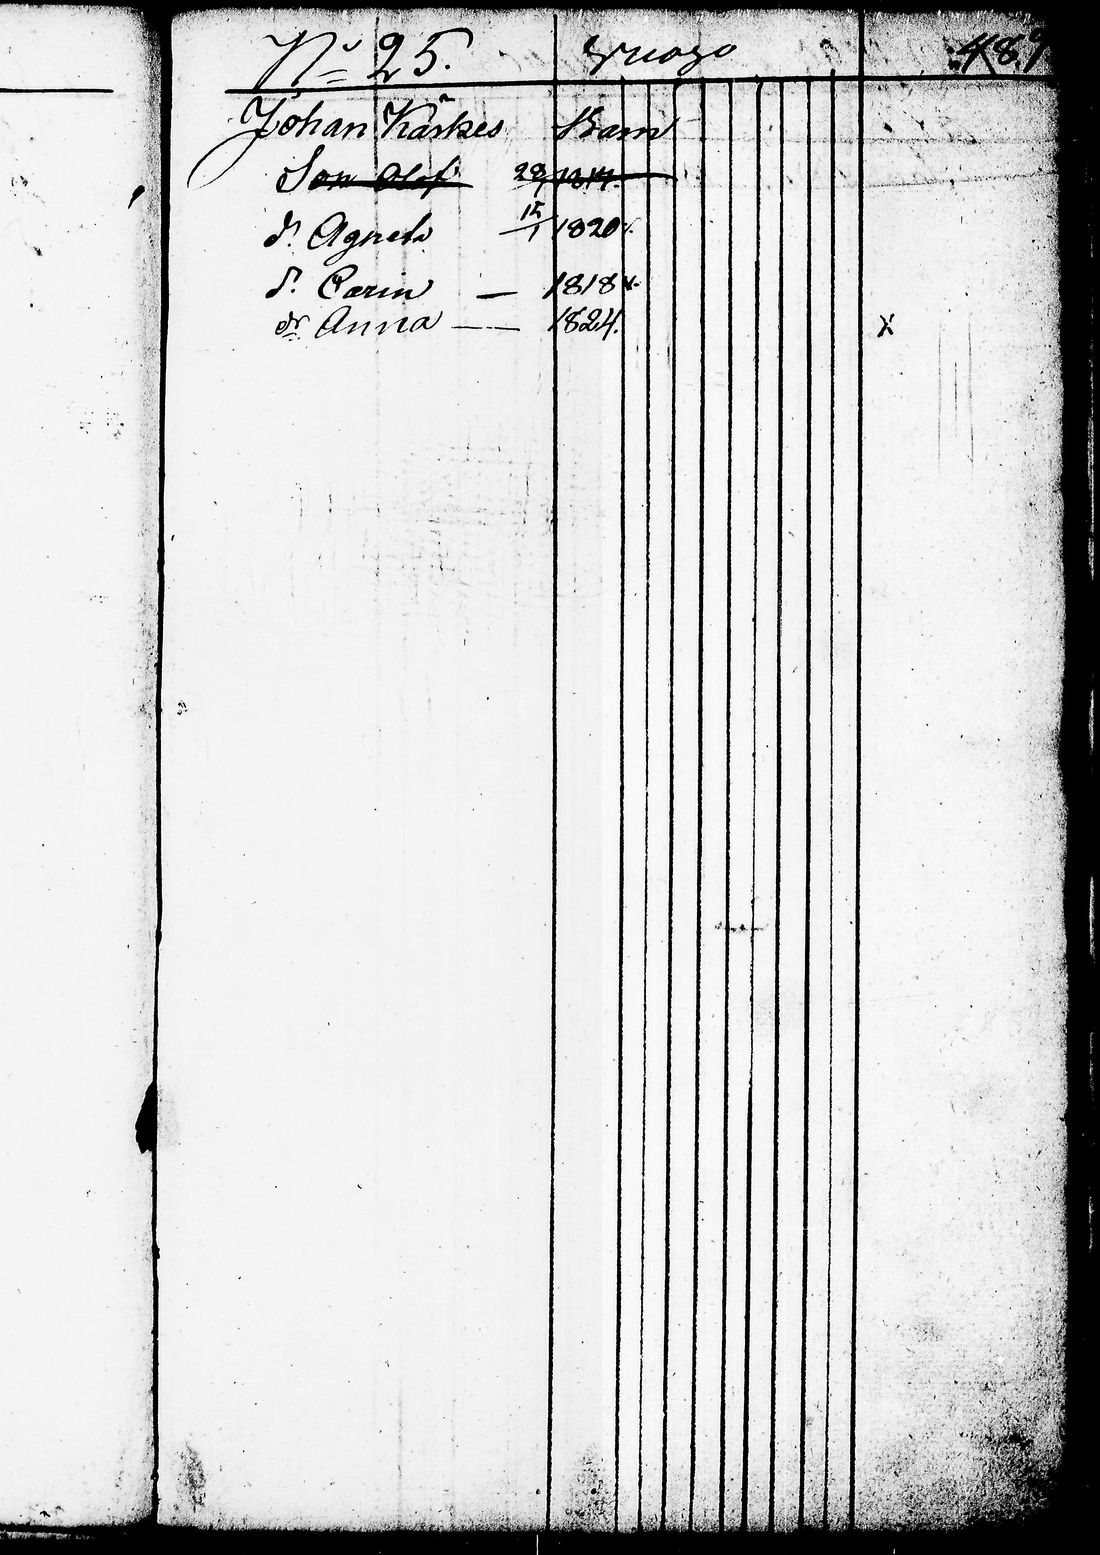 No 25. 487
Johan Karkes Barn
Son Olof 29/
d. Agneta 15/1 1820
d. Carin — 1818
dr Anna — 1824.
X